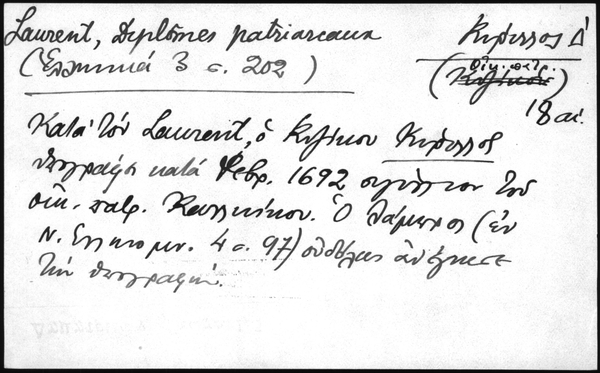 Laurent, Diplômes patriarcaux
(Ἑλληνικά 3 σ. 202)
Κύριλλος Δ'
οἰκ. πατρ.
(Κυζίκου)
18 αἰ.
Κατά τόν Laurent, ὁ Κυζίκου Κύριλλος
ὑπογράφει κατά Φεβρ. 1692 σιγίλλιον τοῦ
οἰκ. πατρ. Καλλινίκου. Ὁ Λάμπρος (ἐν
Ν. Ἑλληνομν. 4 σ. 97)
τήν ὑπογραφήν.